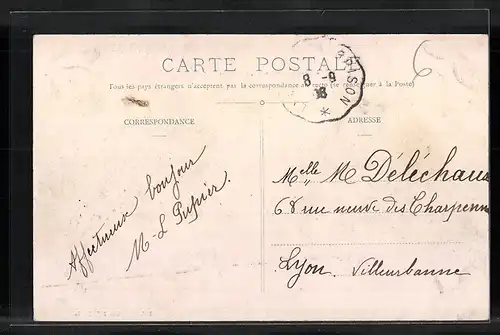 CARTE POSTALE
Tous les pays étrangers n'acceptent pas la correspondance au recto (se renseigner à la Poste)
8 -9
RISON
6
CORRESPONDANCE
ADRESSE
Affectueux bonjour
M-L Pupier.
Melle M Déléchaux
68 rue neuve des Charpenn
Lyon. Villeurbanne